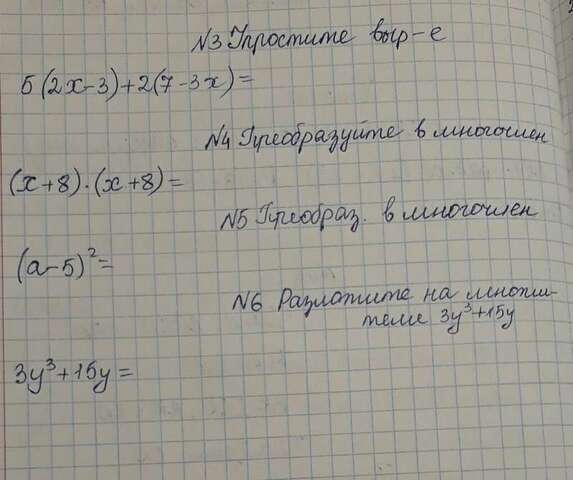 N3 Упростите выр-е
5(2x-3)+2(7-3x)=
N4 Преобразуйте в многочлен
(x+8)·(x+8)=
N5 Преобраз. в многочлен
(a-5)²=
N6 Разложите на множи-
тели 3y³+15y
3y³+15y=